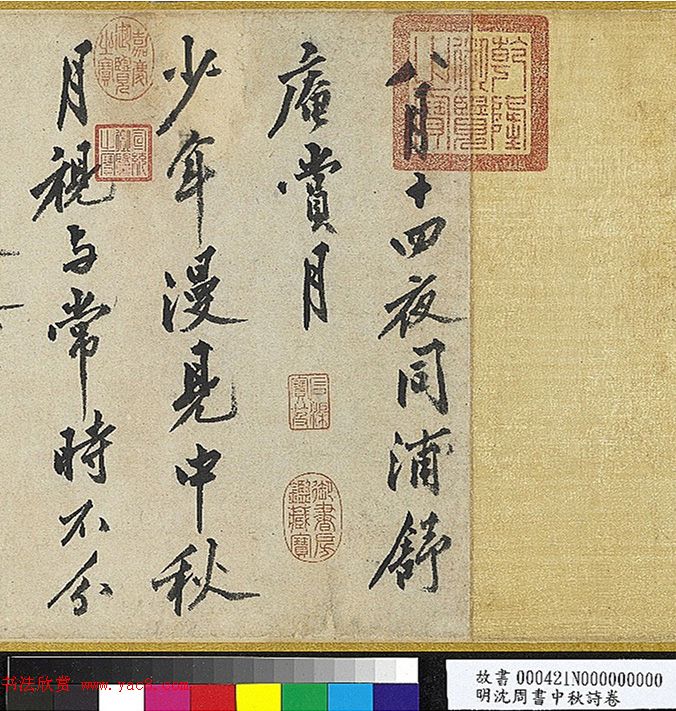 八月十四夜同浦舒
庵賞月
少年漫見中秋
月視与常時不分
乾隆御覽之寶
嘉慶御覽之寶
宣統御覽之寶
御書房鑑藏寶
书法欣赏 www.yac8.com
故書 000421N000000000
明沈周書中秋詩卷